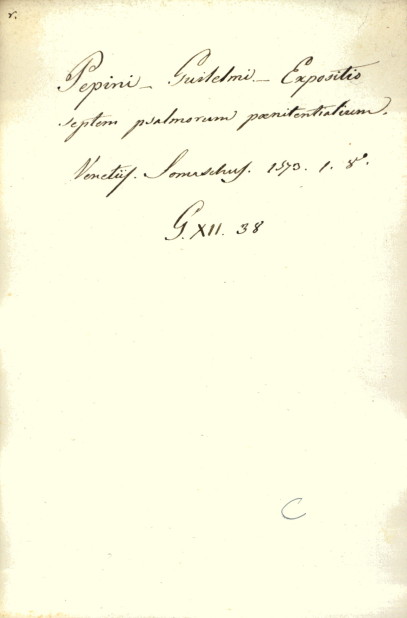 r.
Pepini - Guilelmi - Expositio
septem psalmorum pœnitentialium.
Venetiis. Somaschus. 1573. 1. 8°.
G. XII. 38
C